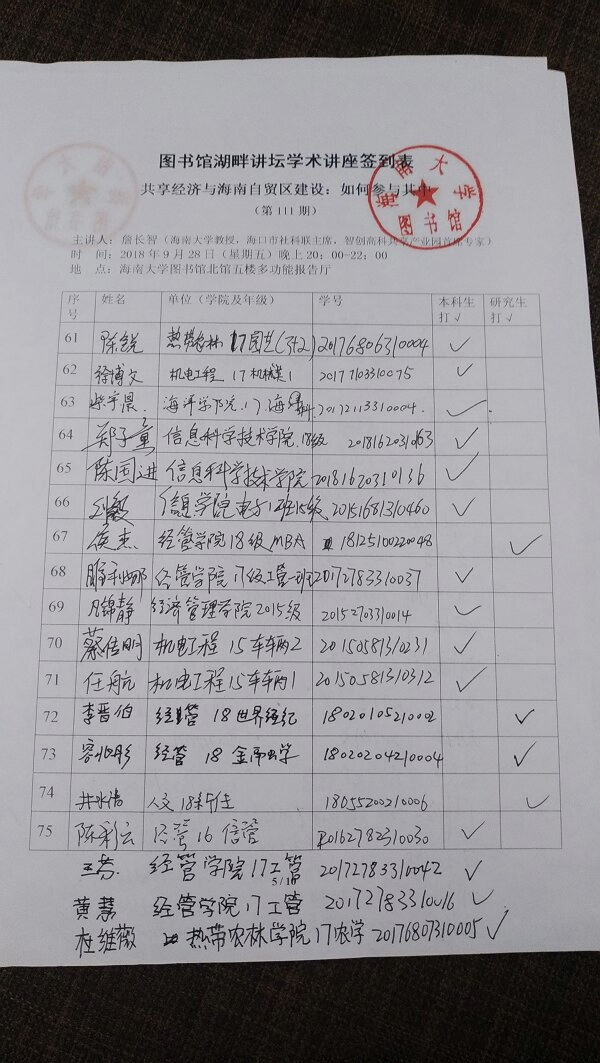 图书馆湖畔讲坛学术讲座签到表
共享经济与海南自贸区建设：如何参与其中
（第 111 期）
海南大学
图书馆
主讲人：詹长智（海南大学教授，海口市社科联主席，智创高科共享产业园首席专家）
时 间：2018 年 9 月 28 日（星期五）晚上 20：00-22：00
地 点：海南大学图书馆北馆五楼多功能报告厅
序号 姓名 单位（学院及年级） 学号 本科生打√ 研究生打√
61 陈锐 热带农林 17园艺(3+2) 20176806310004 ✓
62 徐博文 机电工程 17机械类1 20177103310075 ✓
63 柴宇晨 海洋学院 17 20172113310004 ✓
64 郑子童 信息科学技术学院.18级 20181620310163 ✓
65 陈国进 信息科学技术学院 20181620310136 ✓
66 信息学院电子1班15级 20151681310460 ✓
67 侯杰 经管学院18级MBA 18125100220048 ✓
68 经管学院17级工管一班 20172783310037 ✓
69 凡锦静 经济管理学院2015级 20152703310014 ✓
70 蔡佶明 机电工程 15车辆2 20150581310231 ✓
71 任航 机电工程 15车辆1 20150581310312 ✓
72 李晋伯 经管 18世界经纪 18020105210002 ✓
73 容 经管 18 金融学 18020204210004 ✓
74 井水清 人文18 18055200210006 ✓
75 陈彩云 经管16 信管 20162782310030 ✓
王芬 经管学院17工管 20172783310042 ✓
5/18
黄慧 经管学院17工管 20172783310016 ✓
杜维薇 热带农林学院17农学 20176807310005 ✓